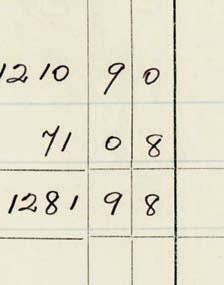 1210 9 0
71 0 8
1281 9 8